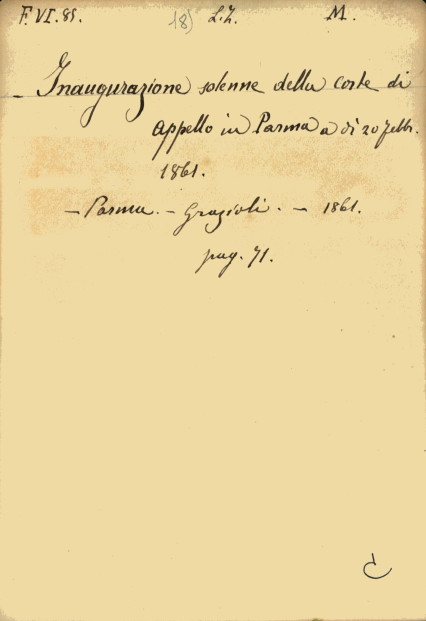 F. VI. 89. 18) L.Z. M.
Inaugurazione solenne della corte di
appello in Parma a dì 20 febbr.
1861.
— Parma. — Grazioli. — 1861.
pag. 71.